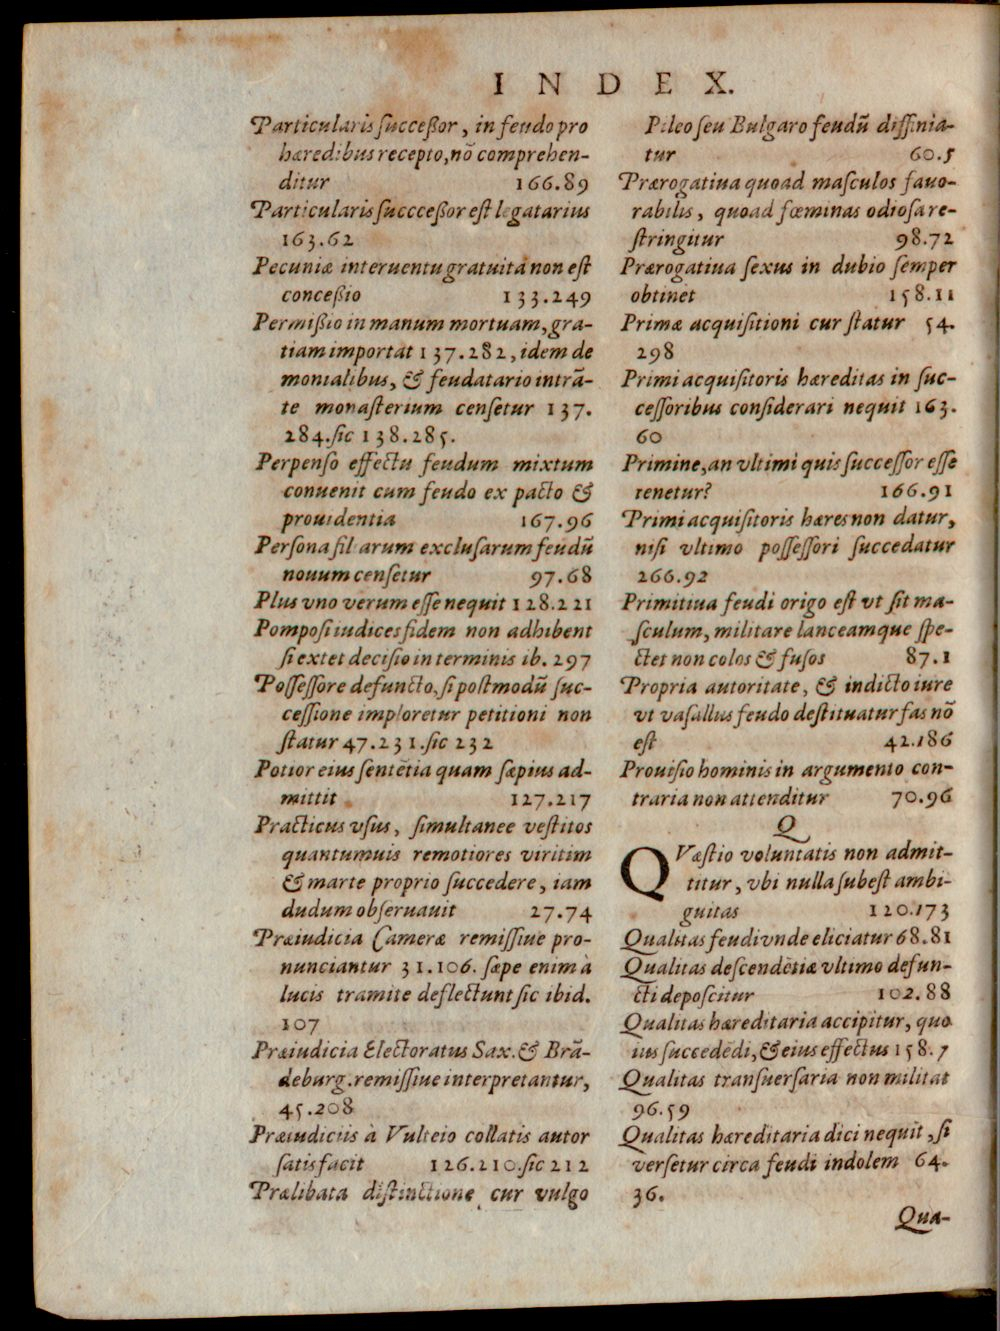 INDEX.
Particularis succeßor, in feudo pro
hæredibus recepto, nõ comprehen-
ditur 166.89
Particularis succceßor est legatarius
163.62
Pecuniæ interuentu gratuita non est
conceßio 133.249
Permißio in manum mortuam, gra-
tiam importat 137.282, idem de
monialibus, & feudatario intrã-
te monasterium censetur 137.
284. sic 138.285.
Perpenso effectu feudum mixtum
conuenit cum feudo ex pacto &
prouidentia 167.96
Persona filiarum exclusarum feudũ
nouum censetur 97.68
Plus vno verum esse nequit 128.221
Pomposi iudices fidem non adhibent
si extet decisio in terminis ib. 297
Possessore defuncto, si postmodũ suc-
cessione imploretur petitioni non
statur 47.231. sic 232
Potior eius sentẽtia quam sæpius ad-
mittit 127.217
Practicus vsus, simultanee vestitos
quantumuis remotiores viritim
& marte proprio succedere, iam
dudum obseruauit 27.74
Præiudicia Cameræ remissiue pro-
nunciantur 31.106. sæpe enim à
lucis tramite deflectunt sic ibid.
107
Præiudicia Electoratus Sax. & Brã-
deburg. remissiue interpretantur,
45.208
Præiudiciis à Vulteio collatis autor
satisfacit 126.210. sic 212
Prælibata distinctione cur vulgo
Pileo seu Bulgaro feudũ diffinia-
tur 60.5
Prærogatiua quoad masculos fauo-
rabilis, quoad fœminas odiosa re-
stringitur 98.72
Prærogatiua sexus in dubio semper
obtinet 158.11
Primæ acquisitioni cur statur 54.
298
Primi acquisitoris hæreditas in suc-
cessoribus considerari nequit 163.
60
Primine, an vltimi quis successor esse
tenetur? 166.91
Primi acquisitoris hæres non datur,
nisi vltimo possessori succedatur
266.92
Primitiua feudi origo est vt sit ma-
sculum, militare lanceamque spe-
ctet non colos & fusos 87.1
Propria autoritate, & indicto iure
vt vasallus feudo destituatur fas nõ
est 42.186
Prouisio hominis in argumento con-
traria non attenditur 70.96
Q
QVæstio voluntatis non admit-
titur, vbi nulla subest ambi-
guitas 120.173
Qualitas feudi vnde eliciatur 68.81
Qualitas descendẽtiæ vltimo defun-
cti deposcitur 102.88
Qualitas hæreditaria accipitur, quo
ius succedẽdi, & eius effectus 158.7
Qualitas transuersaria non militat
96.59
Qualitas hæreditaria dici nequit, si
versetur circa feudi indolem 64.
36.
Qua-